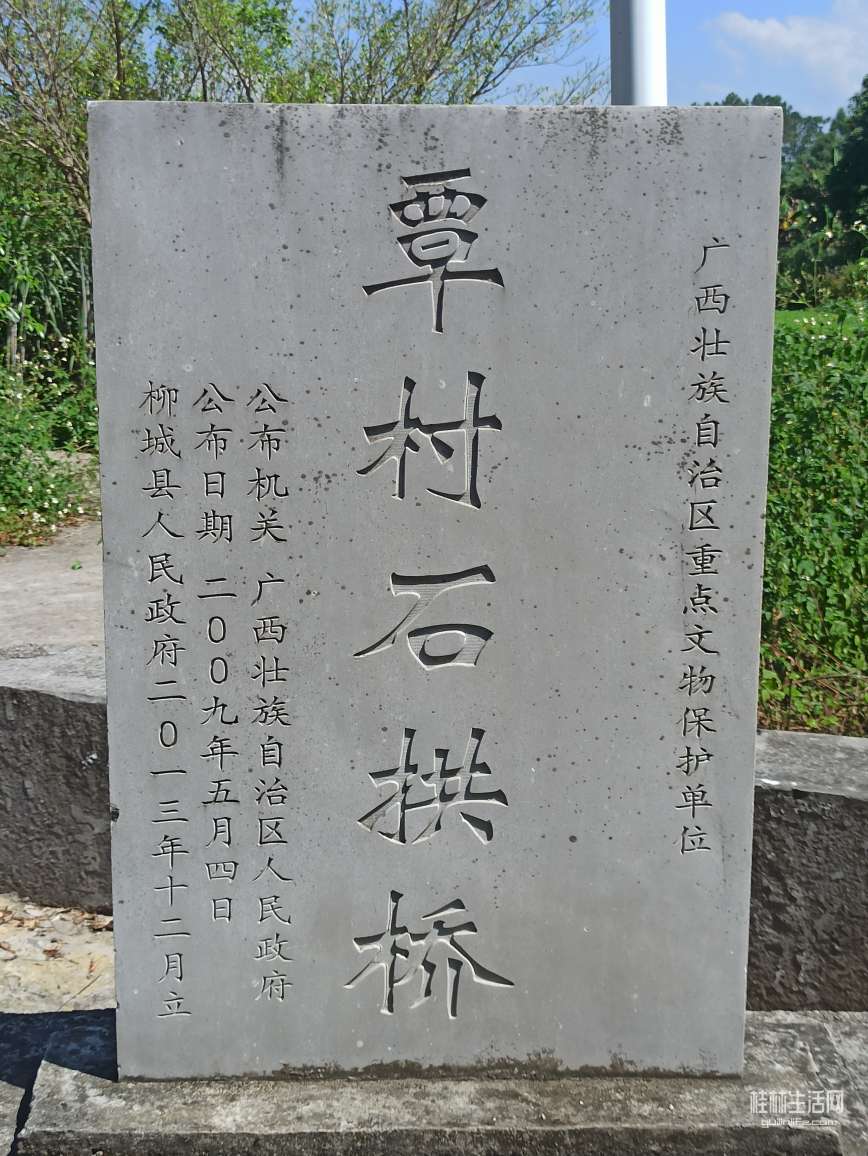 广西壮族自治区重点文物保护单位
覃村石拱桥
公布机关 广西壮族自治区人民政府
公布日期 二00九年五月四日
柳城县人民政府二0一三年十二月立
桂林生活网
guilinlife.com